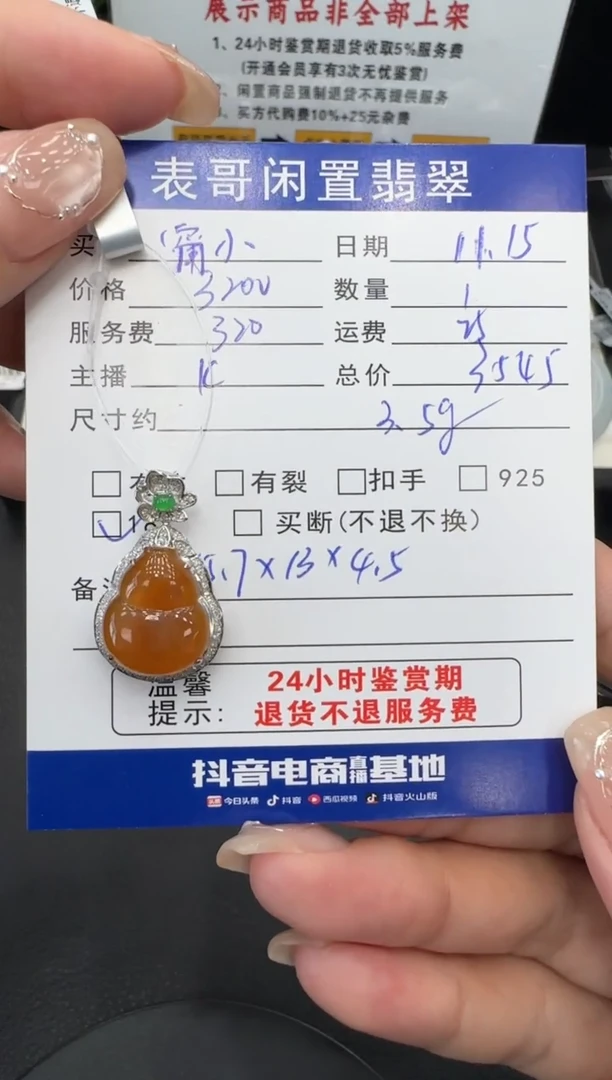 展示商品非全部上架
1、24小时鉴赏期退货收取5%服务费
(开通会员享有3次无忧鉴赏)
、闲置商品强制退货不再提供服务
、买方代购费10%+25元杂费
表哥闲置翡翠
买 小 日期 11.15
价格 3200 数量 1
服务费 320 运费 25
主播 K 总价 3545
尺寸约 3.5g
□ □有裂 □扣手 □ 925
□ □ 买断(不退不换)
备 .7×13×4.5
温馨 24小时鉴赏期
提示: 退货不退服务费
抖音电商直播基地
头条 今日头条 抖音 西瓜视频 抖音火山版